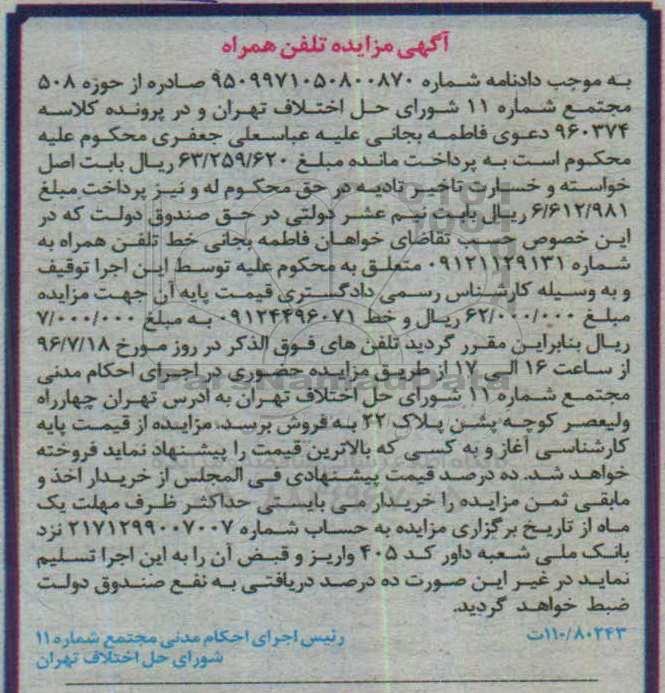 آگهی مزایده تلفن همراه
به موجب دادنامه شماره ۹۵۰۹۹۷۱۰۵۰۸۰۰۸۷۰ صادره از حوزه ۵۰۸
مجتمع شماره ۱۱ شورای حل اختلاف تهران و در پرونده کلاسه
۹۶۰۳۷۴ دعوی فاطمه بجانی علیه عباسعلی جعفری محکوم علیه
محکوم است به پرداخت مانده مبلغ ۶۳/۲۵۹/۶۲۰ ریال بابت اصل
خواسته و خسارت تاخیر تادیه در حق محکوم له و نیز پرداخت مبلغ
۶/۶۱۲/۹۸۱ ریال بابت نیم عشر دولتی در حق صندوق دولت که در
این خصوص حسب تقاضای خواهان فاطمه بجانی خط تلفن همراه به
شماره ۰۹۱۲۱۱۲۹۱۳۱ متعلق به محکوم علیه توسط این اجرا توقیف
و به وسیله کارشناس رسمی دادگستری قیمت پایه آن جهت مزایده
مبلغ ۶۲/۰۰۰/۰۰۰ ریال و خط ۰۹۱۲۴۴۹۶۰۷۱ به مبلغ ۷/۰۰۰/۰۰۰
ریال بنابراین مقرر گردید تلفن های فوق الذکر در روز مورخ ۹۶/۷/۱۸
از ساعت ۱۶ الی ۱۷ از طریق مزایده حضوری در اجرای احکام مدنی
ParsNamadData
مجتمع شماره ۱۱ شورای حل اختلاف تهران به ادرس تهران چهارراه
ولیعصر کوچه پشن پلاک ۲۲ به فروش برسد. مزایده از قیمت پایه
کارشناسی آغاز و به کسی که بالاترین قیمت را پیشنهاد نماید فروخته
خواهد شد. ده درصد قیمت پیشنهادی فی المجلس از خریدار اخذ و
مابقی ثمن مزایده را خریدار می بایستی حداکثر ظرف مهلت یک
ماه از تاریخ برگزاری مزایده به حساب شماره ۲۱۷۱۲۹۹۰۰۷۰۰۷ نزد
بانک ملی شعبه داور کد ۴۰۵ واریز و قبض آن را به این اجرا تسلیم
نماید در غیر این صورت ده درصد دریافتی به نفع صندوق دولت
ضبط خواهد گردید.
۱۱۰/۸۰۲۴۳ت
رئیس اجرای احکام مدنی مجتمع شماره ۱۱
شورای حل اختلاف تهران